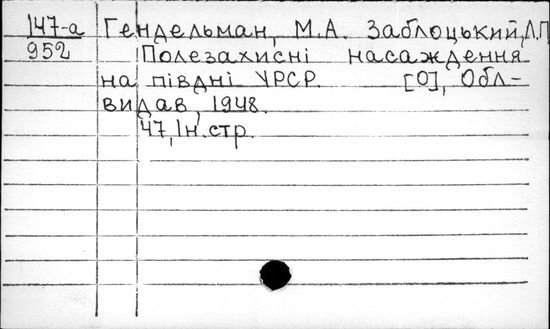 147-а Гендельман, М.А. Заблоцький, Л.П
952 Полезахисні насаждення
на півдні УРСР. [О], Обл-
видав, 1948.
47, Ін. стр.